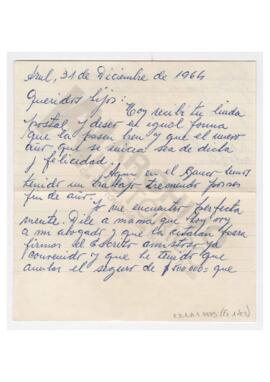 Azul, 31 de Diciembre de 1964
Queridos hijos:
Hoy recibí tu linda
postal, y deseo de igual forma
que la pasen bien y que el nuevo
año, que se inicia sea de dicha
y felicidad.
Aquí en el Banco hemos
tenido un trabajo tremendo por ser
fin de año.
Yo me encuentro perfecta
mente. Dile a mamá que hoy voy
a mi abogado y que la citarán para
firmar el escrito amistoso ya
convenido y que he tenido que
anular el seguro de $ que